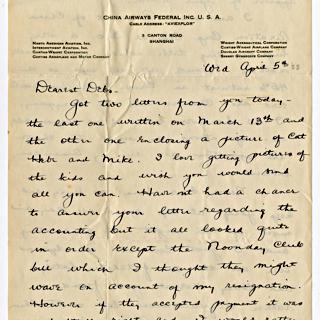 CHINA AIRWAYS FEDERAL INC. U. S. A.
CABLE ADDRESS: "AVIEXPLOR"
3 CANTON ROAD
SHANGHAI
NORTH AMERICAN AVIATION, INC.
INTERCONTINENT AVIATION, INC.
CURTISS-WRIGHT CORPORATION
CURTISS AEROPLANE AND MOTOR COMPANY
WRIGHT AERONAUTICAL CORPORATION
CURTISS-WRIGHT AIRPLANE COMPANY
DOUGLAS AIRCRAFT COMPANY
SPERRY GYROSCOPE COMPANY
Wed April 5th
Dearest Debs-
Got two letters from you today-
the last one written on March 13th and
the other one enclosing a picture of Cat
and Mike. I love getting pictures of
the kids and wish you would send
all you can. Have not had a chance
to answer your letter regarding the
accounting but it all looked quite
in order except the Noonday Club
bill which I thought they might
wave on account of my resignation.
However if they accepted payment it was